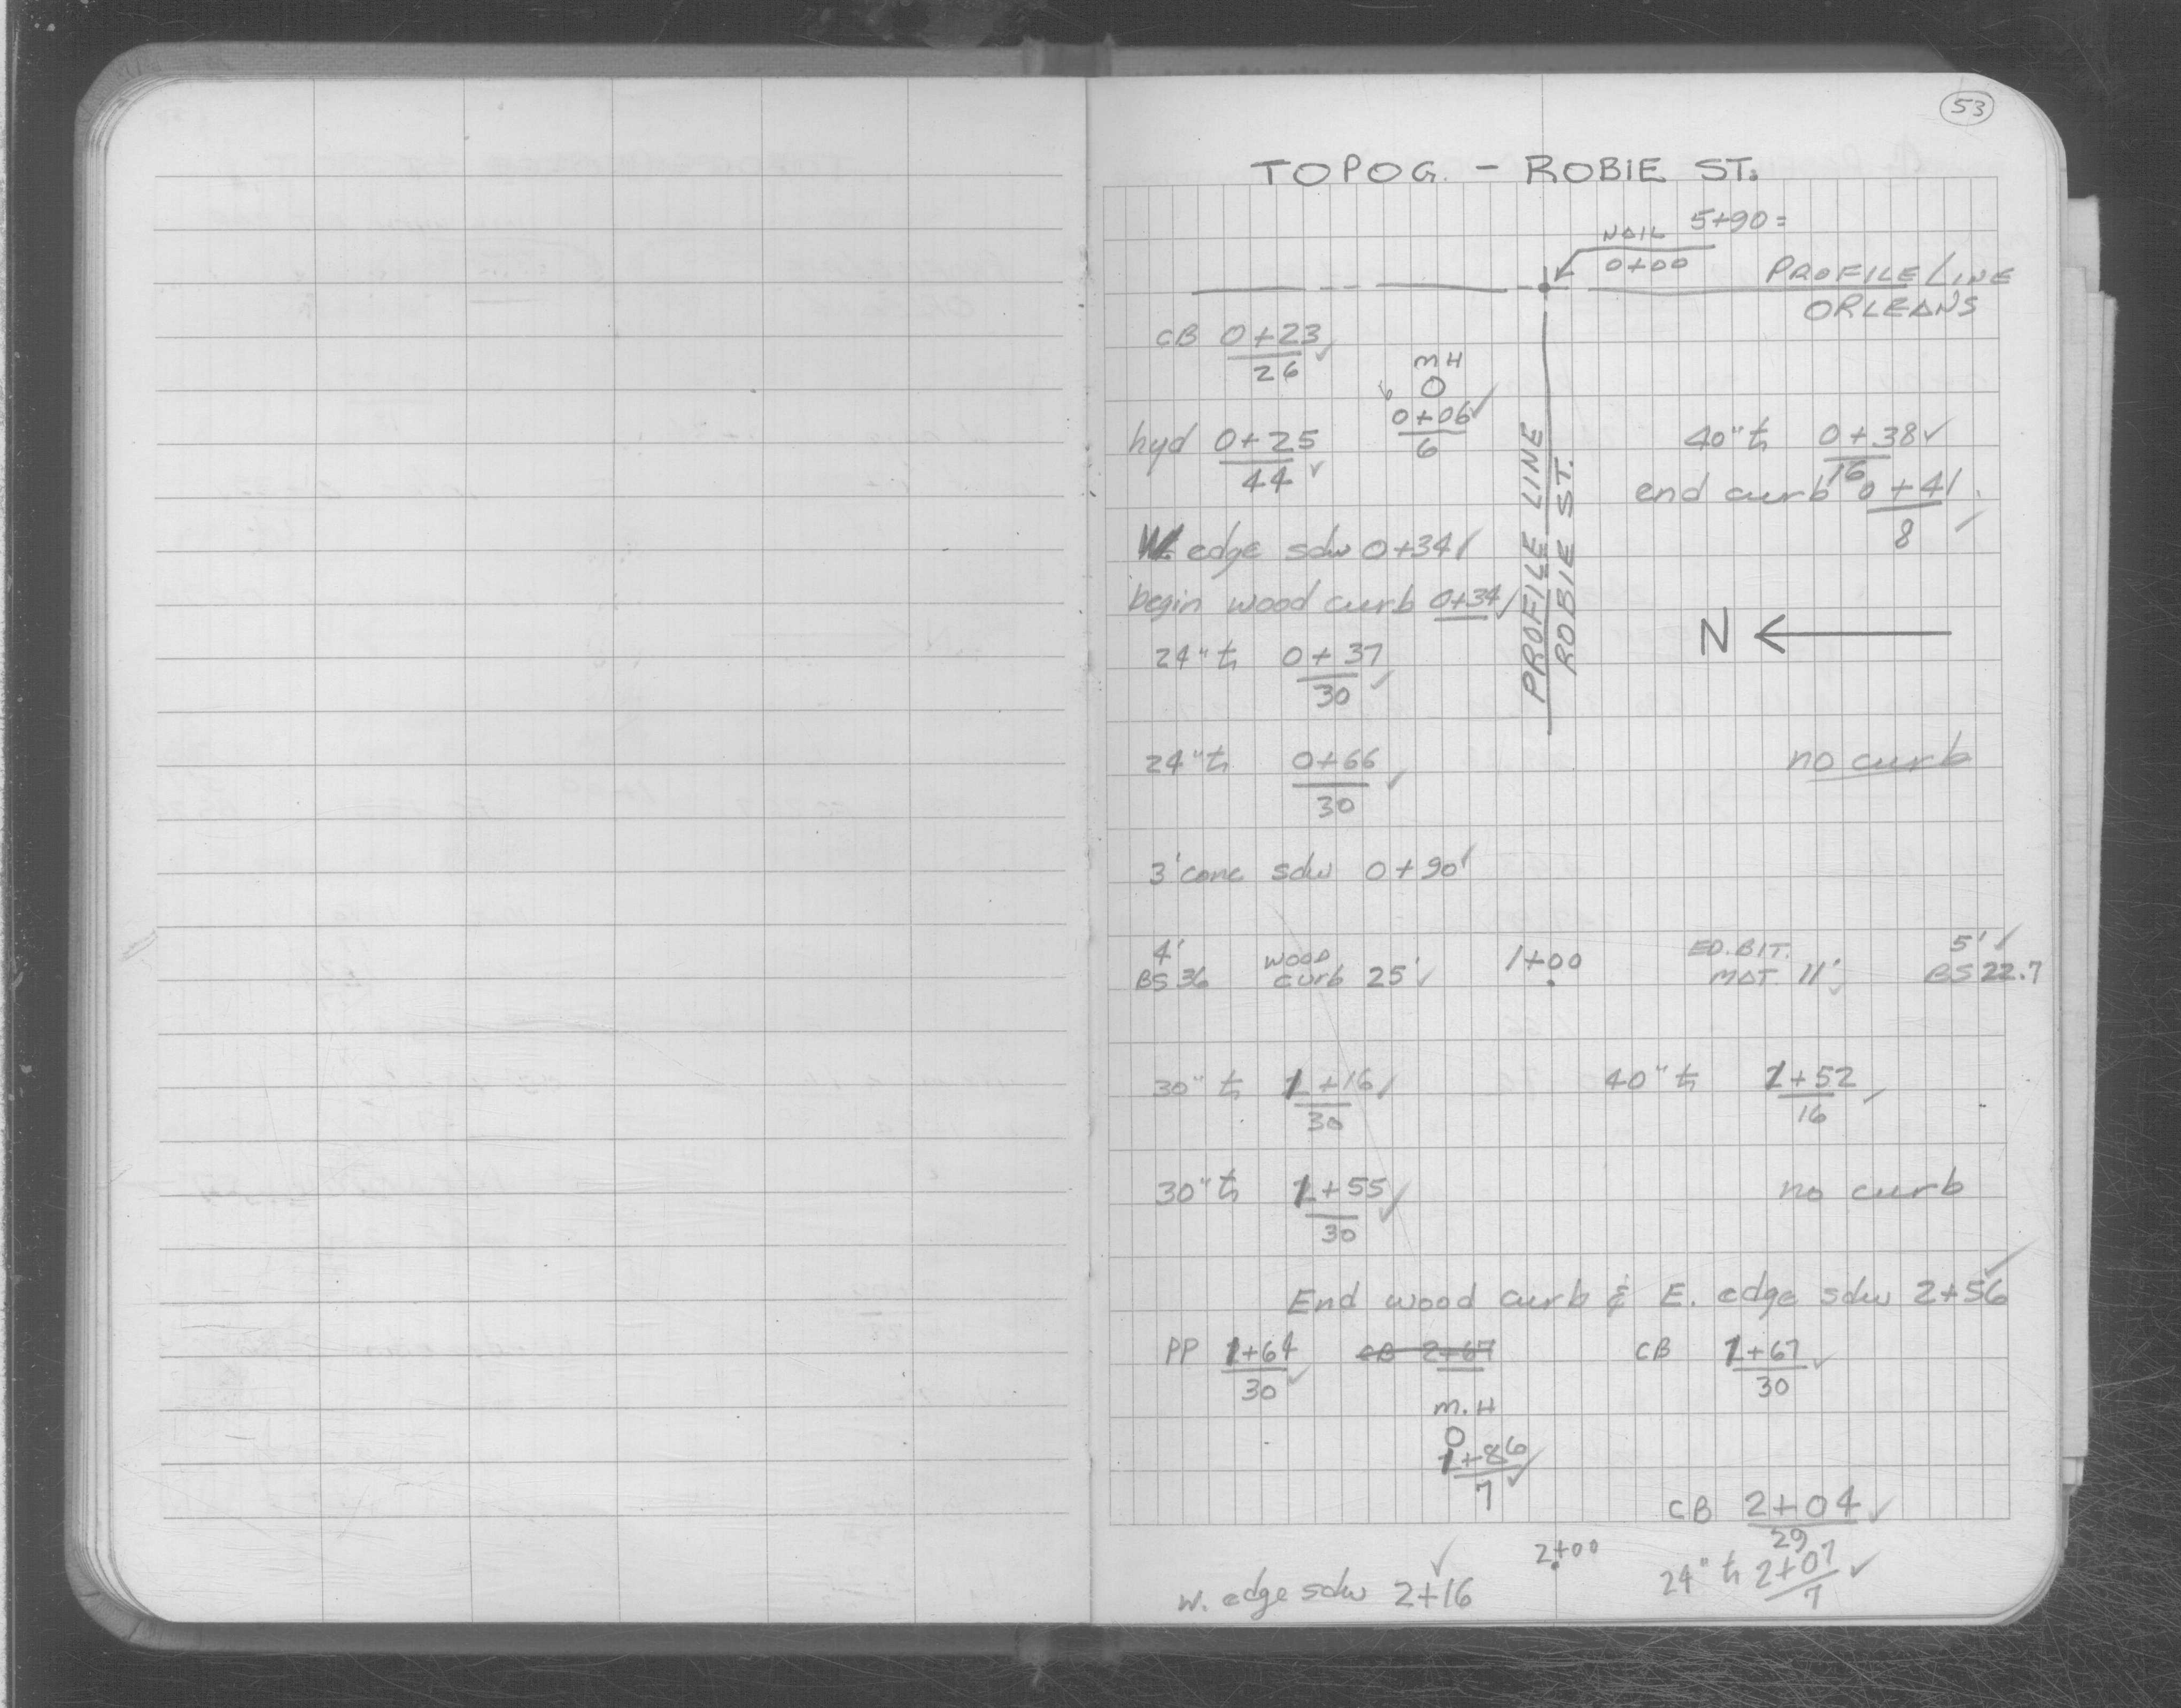 53
TOPOG. - ROBIE ST.
NAIL 5+90=
0+00
PROFILE LINE
ORLEANS
CB 0+23 ✓
26
MH
O
0+06 ✓
6
hyd 0+25
44 ✓
40" tr 0+38 ✓
16
end curb 0+41
8 ✓
PROFILE LINE
ROBIE ST.
W. edge sdw 0+34 ✓
begin wood curb 0+34 ✓
N
24" tr 0+37
30 ✓
24" tr 0+66
30 ✓
no curb
3' conc sdw 0+90 ✓
4'
BS 36
wood
curb 25' ✓
1+00
ED. BIT.
MAT. 11' ✓
5' ✓
BS 22.7
30" tr 1+16 ✓
30
40" tr 1+52 ✓
16
30" tr 1+55 ✓
30
no curb
End wood curb & E. edge sdw 2+56 ✓
PP 1+64
30 ✓
CB 2+67
CB 1+67 ✓
30
M.H
O
1+86
7 ✓
CB 2+04 ✓
29
2+00
24" tr 2+07 ✓
7
W. edge sdw 2+16 ✓